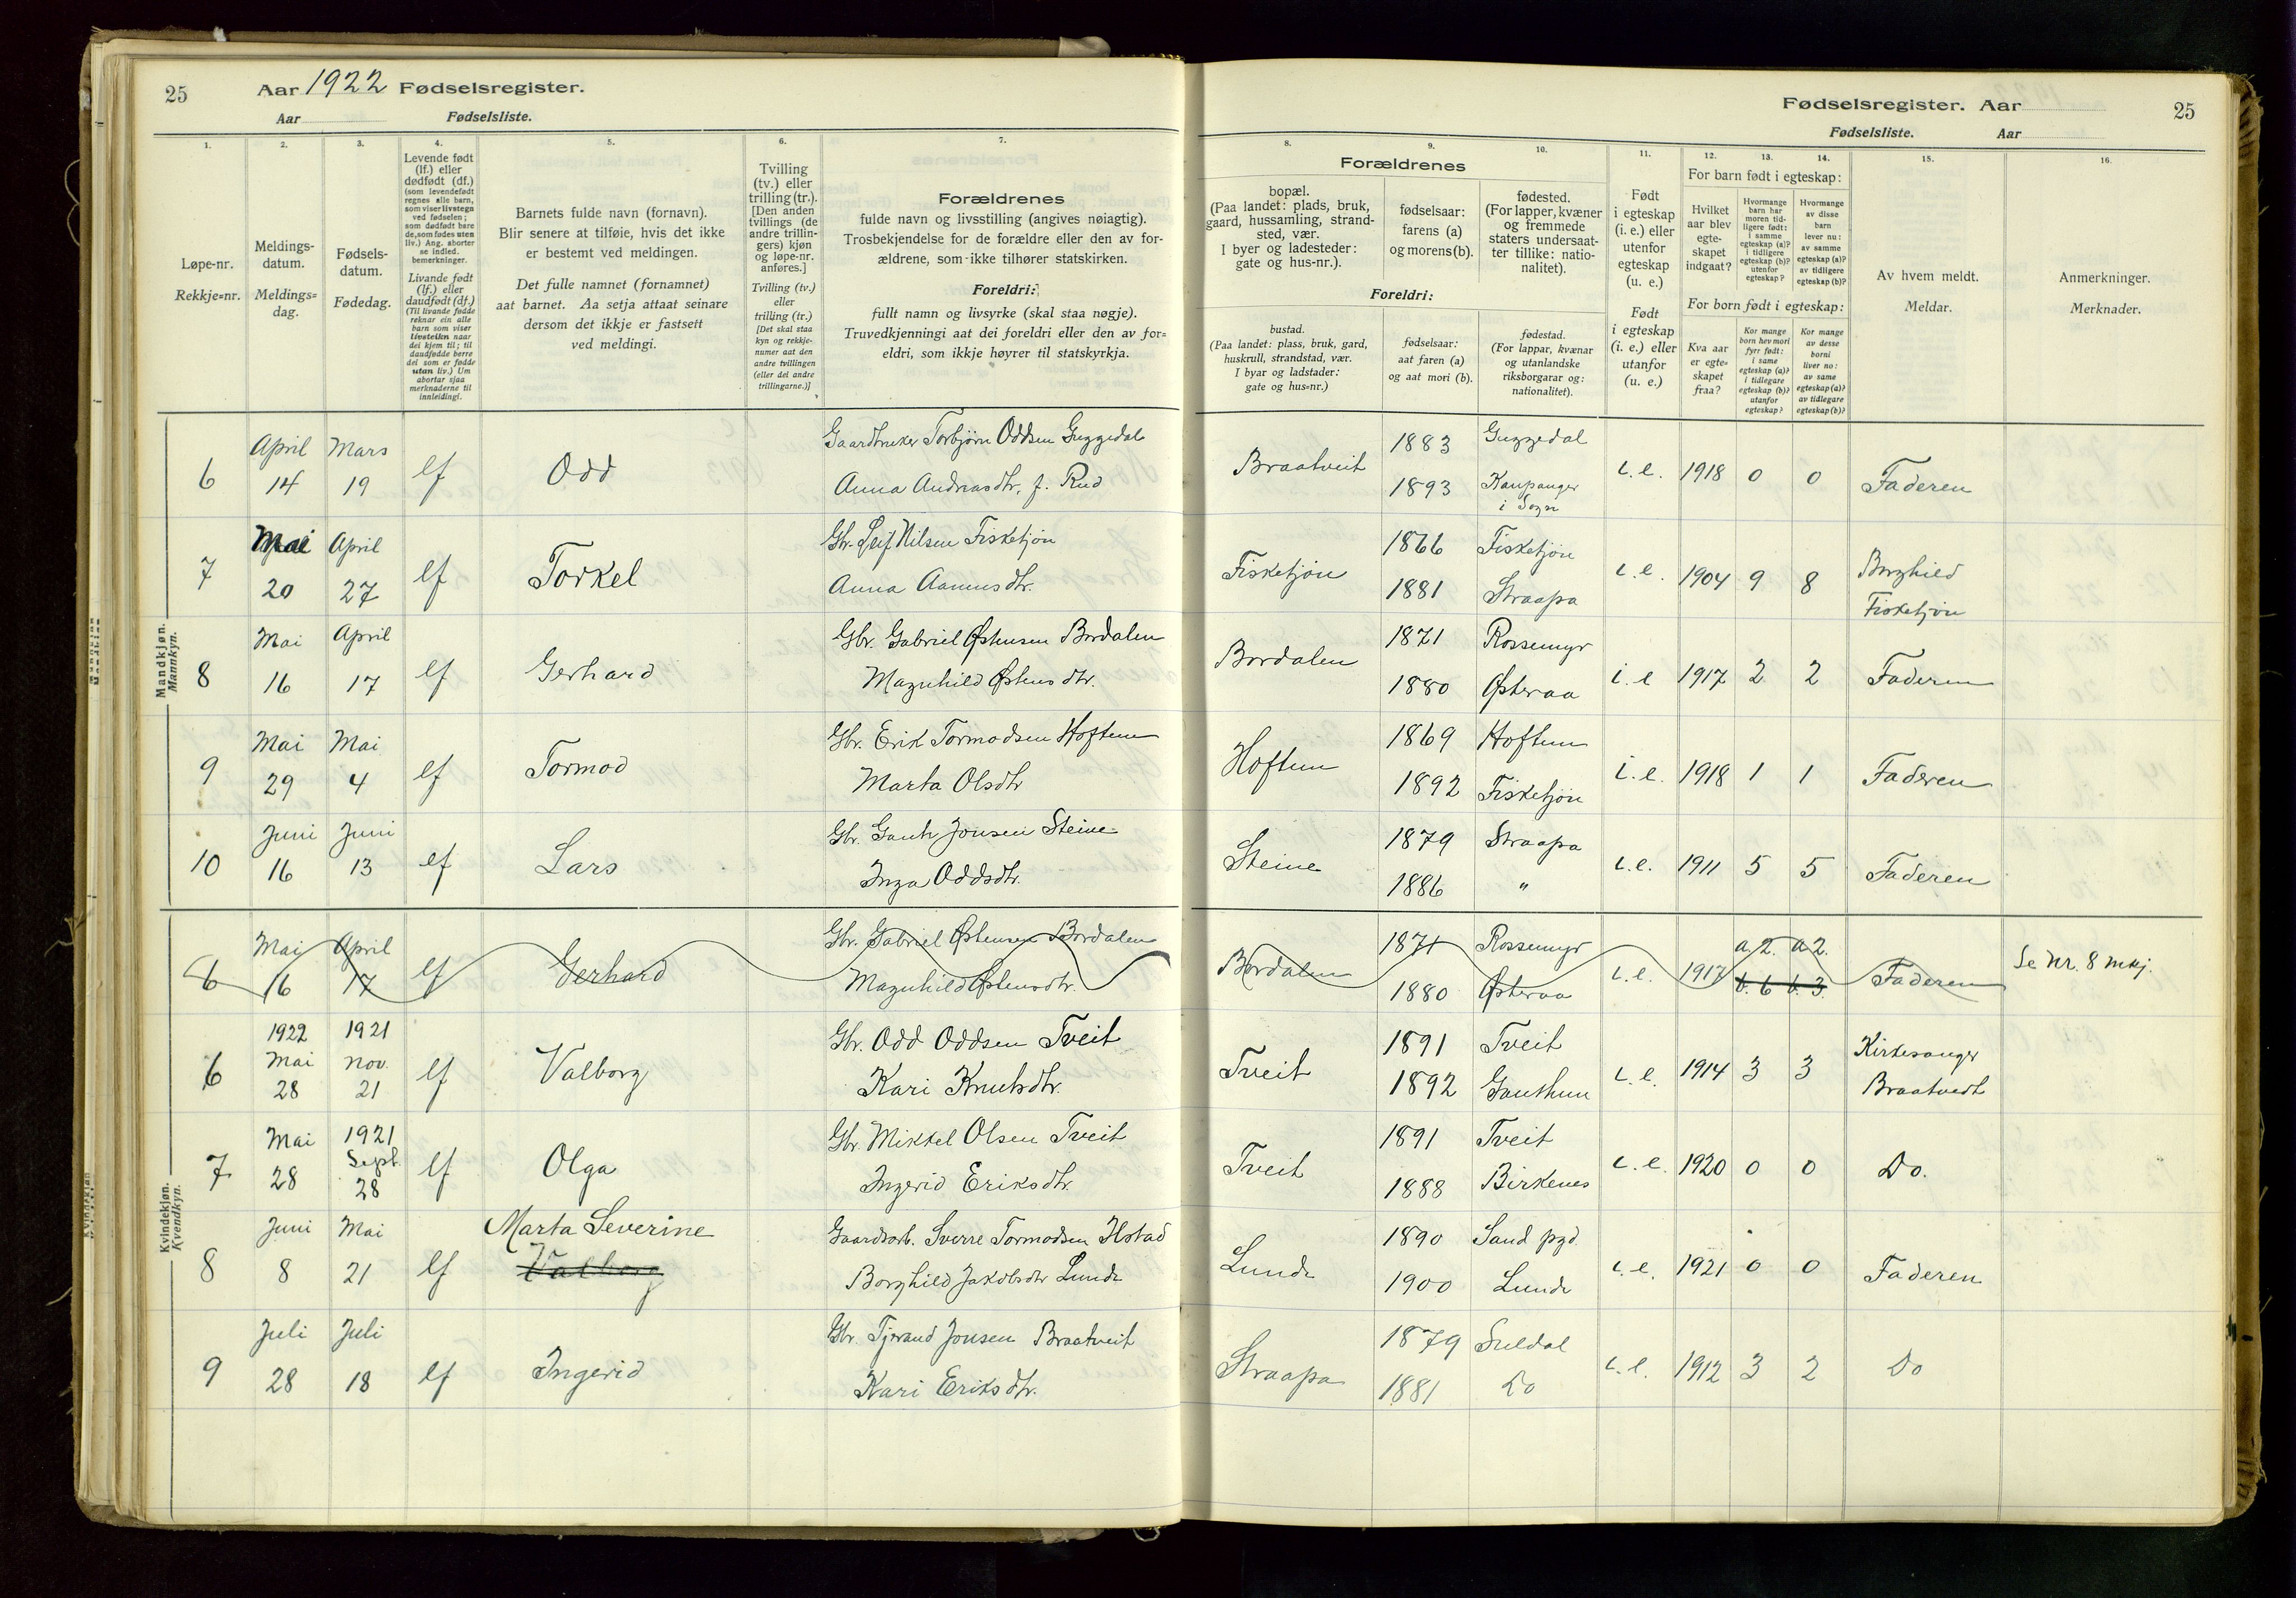 25
Aar 1922 Fødselsregister.
Aar Fødselsliste.
1. 2. 3. 4. 5. 6. 7.
Løpe-nr.
Rekkje=nr.
Meldings-
datum.
Meldings=
dag.
Fødsels-
datum.
Fødedag.
Levende født
(lf.) eller
dødfødt (df.)
(som levendefødt
regnes alle barn,
som viser livstegn
ved fødselen;
som dødfødt bare
de, som fødes uten
liv.) Ang. aborter
se indled.
bemerkninger.
Livande født
(lf.) eller
daudfødt (df.)
(Til livande fødde
reknar ein alle
barn som viser
livsteikn naar
dei kjem til; til
daudfødde berre
dei som er fødde
utan liv.) Um
abortar sjaa
merknaderne til
innleidingi.
Barnets fulde navn (fornavn).
Blir senere at tilføie, hvis det ikke
er bestemt ved meldingen.
Det fulle namnet (fornamnet)
aat barnet. Aa setja attaat seinare
dersom det ikkje er fastsett
ved meldingi.
Tvilling
(tv.) eller
trilling (tr.).
[Den anden
tvillings (de
andre trillin-
gers) kjøn
og løpe-nr.
anføres.]
Tvilling (tv.)
eller
trilling (tr.)
[Det skal staa
kyn og rekkje-
numer aat den
andre tvillingen
(eller dei andre
trillingarne.)]
Forældrenes
fulde navn og livsstilling (angives nøiagtig).
Trosbekjendelse for de forældre eller den av for-
ældrene, som ikke tilhører statskirken.
Foreldri:
fullt namn og livsyrke (skal staa nøgje).
Truvedkjenningi aat dei foreldri eller den av for=
eldri, som ikkje høyrer til statskyrkja.
Mandkjøn.
Mannkyn.
6 April 14 Mars 19 lf Odd
Gaardbruker Torbjørn Oddsen Guggedal
Anna Andreasdtr. f. Rud
7 Mai 20 April 27 lf Torkel
Gbr. Leif Nilsen Fisketjøn
Anna Aamusdtr.
8 Mai 16 April 17 lf Gerhard
Gbr. Gabriel Østensen Bordalen
Magnhild Østensdtr.
9 Mai 29 Mai 4 lf Tormod
Gbr. Erik Tormodsen Hoftun
Marta Olsdtr
10 Juni 16 Juni 13 lf Lars
Gbr. Gaut Jonsen Steine
Inga Oddsdtr.
Kvindekjøn.
Kvendkyn.
6 Mai 16 April 17 lf Gerhard
Gbr. Gabriel Østensen Bordalen
Magnhild Østensdtr.
6 1922 Mai 28 1921 Nov. 21 lf Valborg
Gbr. Odd Oddsen Tveit
Kari Knutsdtr.
7 Mai 28 1921 Sept. 28 lf Olga
Gbr. Mikkel Olsen Tveit
Ingerid Eriksdtr.
8 Juni 8 Mai 21 lf Marta Severine
Valborg
Gaardsarb. Sverre Tormodsen Ilstad
Borghild Jakobsdtr Lunde
9 Juli 28 Juli 18 lf Ingerid
Gbr. Tjerand Jonsen Braatveit
Kari Eriksdtr.
Fødselsregister. Aar 25
Fødselsliste. Aar
8. 9. 10. 11. 12. 13. 14. 15. 16.
Forældrenes
bopæl.
(Paa landet: plads, bruk,
gaard, hussamling, strand-
sted, vær.
I byer og ladesteder:
gate og hus-nr.).
fødselsaar:
farens (a)
og morens (b).
fødested.
(For lapper, kvæner
og fremmede
staters undersaat-
ter tillike: natio-
nalitet).
Foreldri:
bustad.
(Paa landet: plass, bruk, gard,
huskrull, strandstad, vær.
I byar og ladstader:
gate og hus=nr.)
fødselsaar:
aat faren (a)
og aat mori (b).
fødestad.
(For lappar, kvænar
og utanlandske
riksborgarar og:
nationalitet).
Født
i egteskap
(i. e.) eller
utenfor
egteskap
(u. e.)
Født
i egteskap
(i. e.) eller
utanfor
(u. e.)
For barn født i egteskap:
Hvilket
aar blev
egte-
skapet
indgaat?
Hvormange
barn har
moren tid-
ligere født:
i samme
egteskap (a)?
i tidligere
egteskap (b)?
utenfor
egteskap?
Hvormange
av disse
barn
lever nu:
av samme
egteskap (a)?
av tidligere
egteskap (b)?
For born født i egteskap:
Kva aar
er egte-
skapet
fraa?
Kor mange
born hev mori
fyrr født:
i same
egteskap (a)?
i tidlegare
egteskap (b)?
utanfor
egteskap?
Kor mange
av desse
borni
liver no:
av same
egteskap (a)?
av tidlegare
egteskap (b)?
Av hvem meldt.
Meldar.
Anmerkninger.
Merknader.
Braatveit 1883 Guggedal
1893 Kaupanger i Sogn
i.e. 1918 0 0 Faderen
Fisketjøn 1866 Fisketjøn
1881 Straapa
i.e. 1904 9 8 Borghild
Fisketjøn
Bordalen 1871 Rossemyr
1880 Østeraa
i.e 1917 2 2 Faderen
Hoftun 1869 Hoftun
1892 Fisketjøn
i.e. 1918 1 1 Faderen
Steine 1879 Straapa
1886 "
i.e. 1911 5 5 Faderen
Bordalen 1871 Rossemyr
1880 Østeraa
i.e. 1917 a. 2. a 2.
b. 6 b. 3.
Faderen Se Nr. 8 mkj.
Tveit 1891 Tveit
1892 Gauthun
i.e. 1914 3 3 Kirkesanger
Braatvedt
Tveit 1891 Tveit
1888 Birkenes
i.e. 1920 0 0 Do.
Lunde 1890 Sand pgd.
1900 Lunde
i.e. 1921 0 0 Faderen
Straapa 1879 Suldal
1881 Do
i.e. 1912 3 2 Do